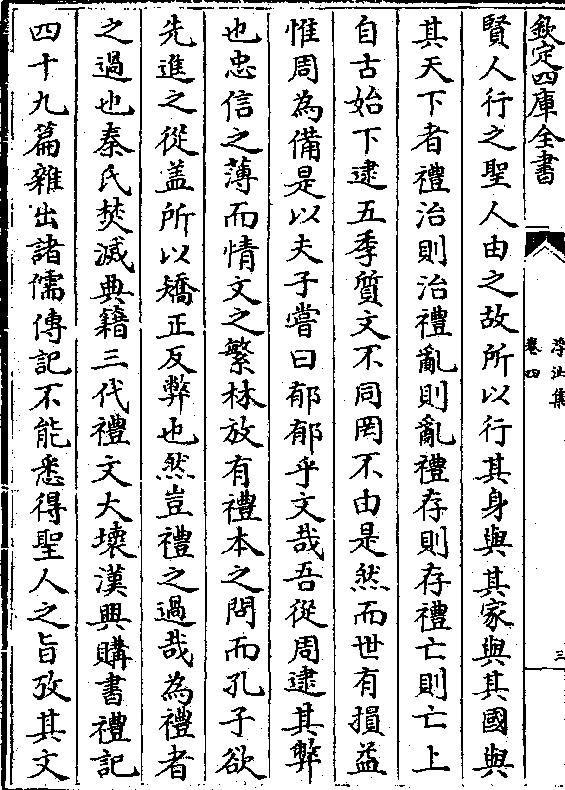 欽定四庫全書
浮沚集
卷四
三
賢人行之聖人由之故所以行其身與其家與其國與
其天下者禮治則治禮亂則亂禮存則存禮亡則亡上
自古始下逮五季質文不同罔不由是然而世有損益
惟周為備是以夫子嘗曰郁郁乎文哉吾從周逮其弊
也忠信之薄而情文之繁林放有禮本之問而孔子欲
先進之從盖所以矯正反弊也然豈禮之過哉為禮者
之過也秦氏焚滅典籍三代禮文大壞漢興購書禮記
四十九篇雜出諸儒傳記不能悉得聖人之旨攷其文